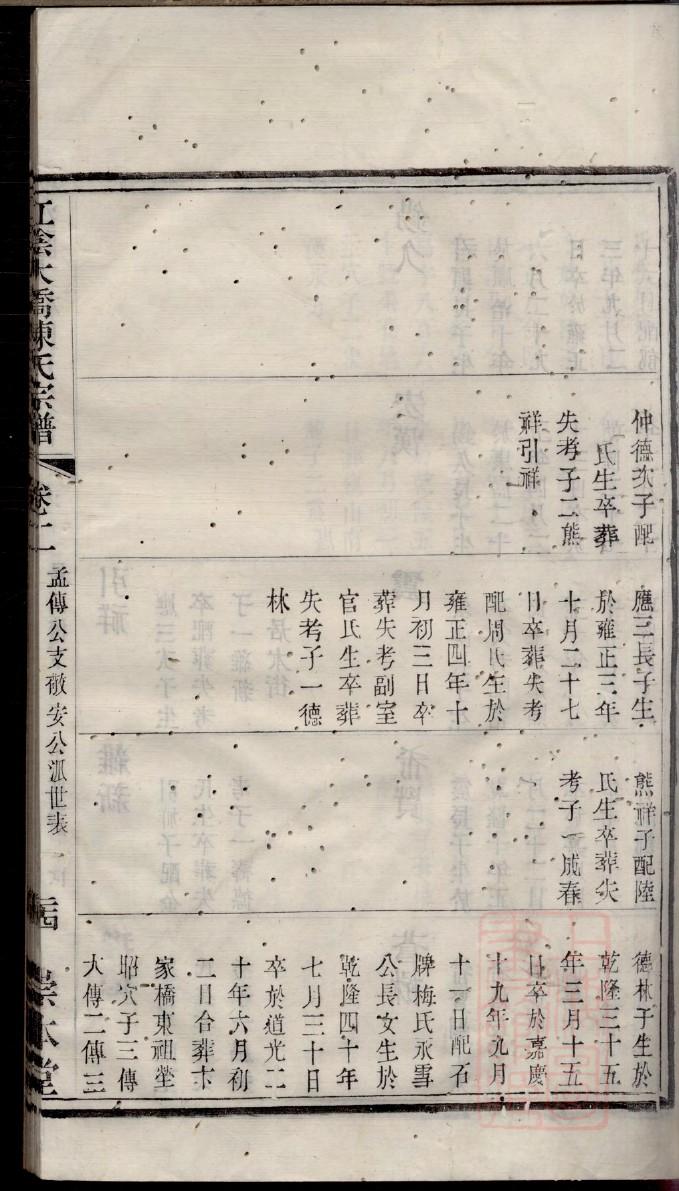 仲德次子配
氏生卒葬
失考子二熊
祥引祥
應三長子生
於雍正三年
十月二十七
日卒葬失考
配周氏生於
雍正四年十
月初三日卒
葬失考副室
官氏生卒葬
失考子一德
林
熊祥子配陸
氏生卒葬失
考子一成春
德林子生於
乾隆三十五
年三月十五
日卒於嘉慶
十九年九月
十一日配石
牌梅氏永雪
公長女生於
乾隆四十年
七月三十日
卒於道光二
十年六月初
二日合葬卞
家橋東祖塋
昭穴子三傳
大傳二傳三
江陰大橋陳氏宗譜
卷二
孟傳公支敬安公派世表
崇本堂